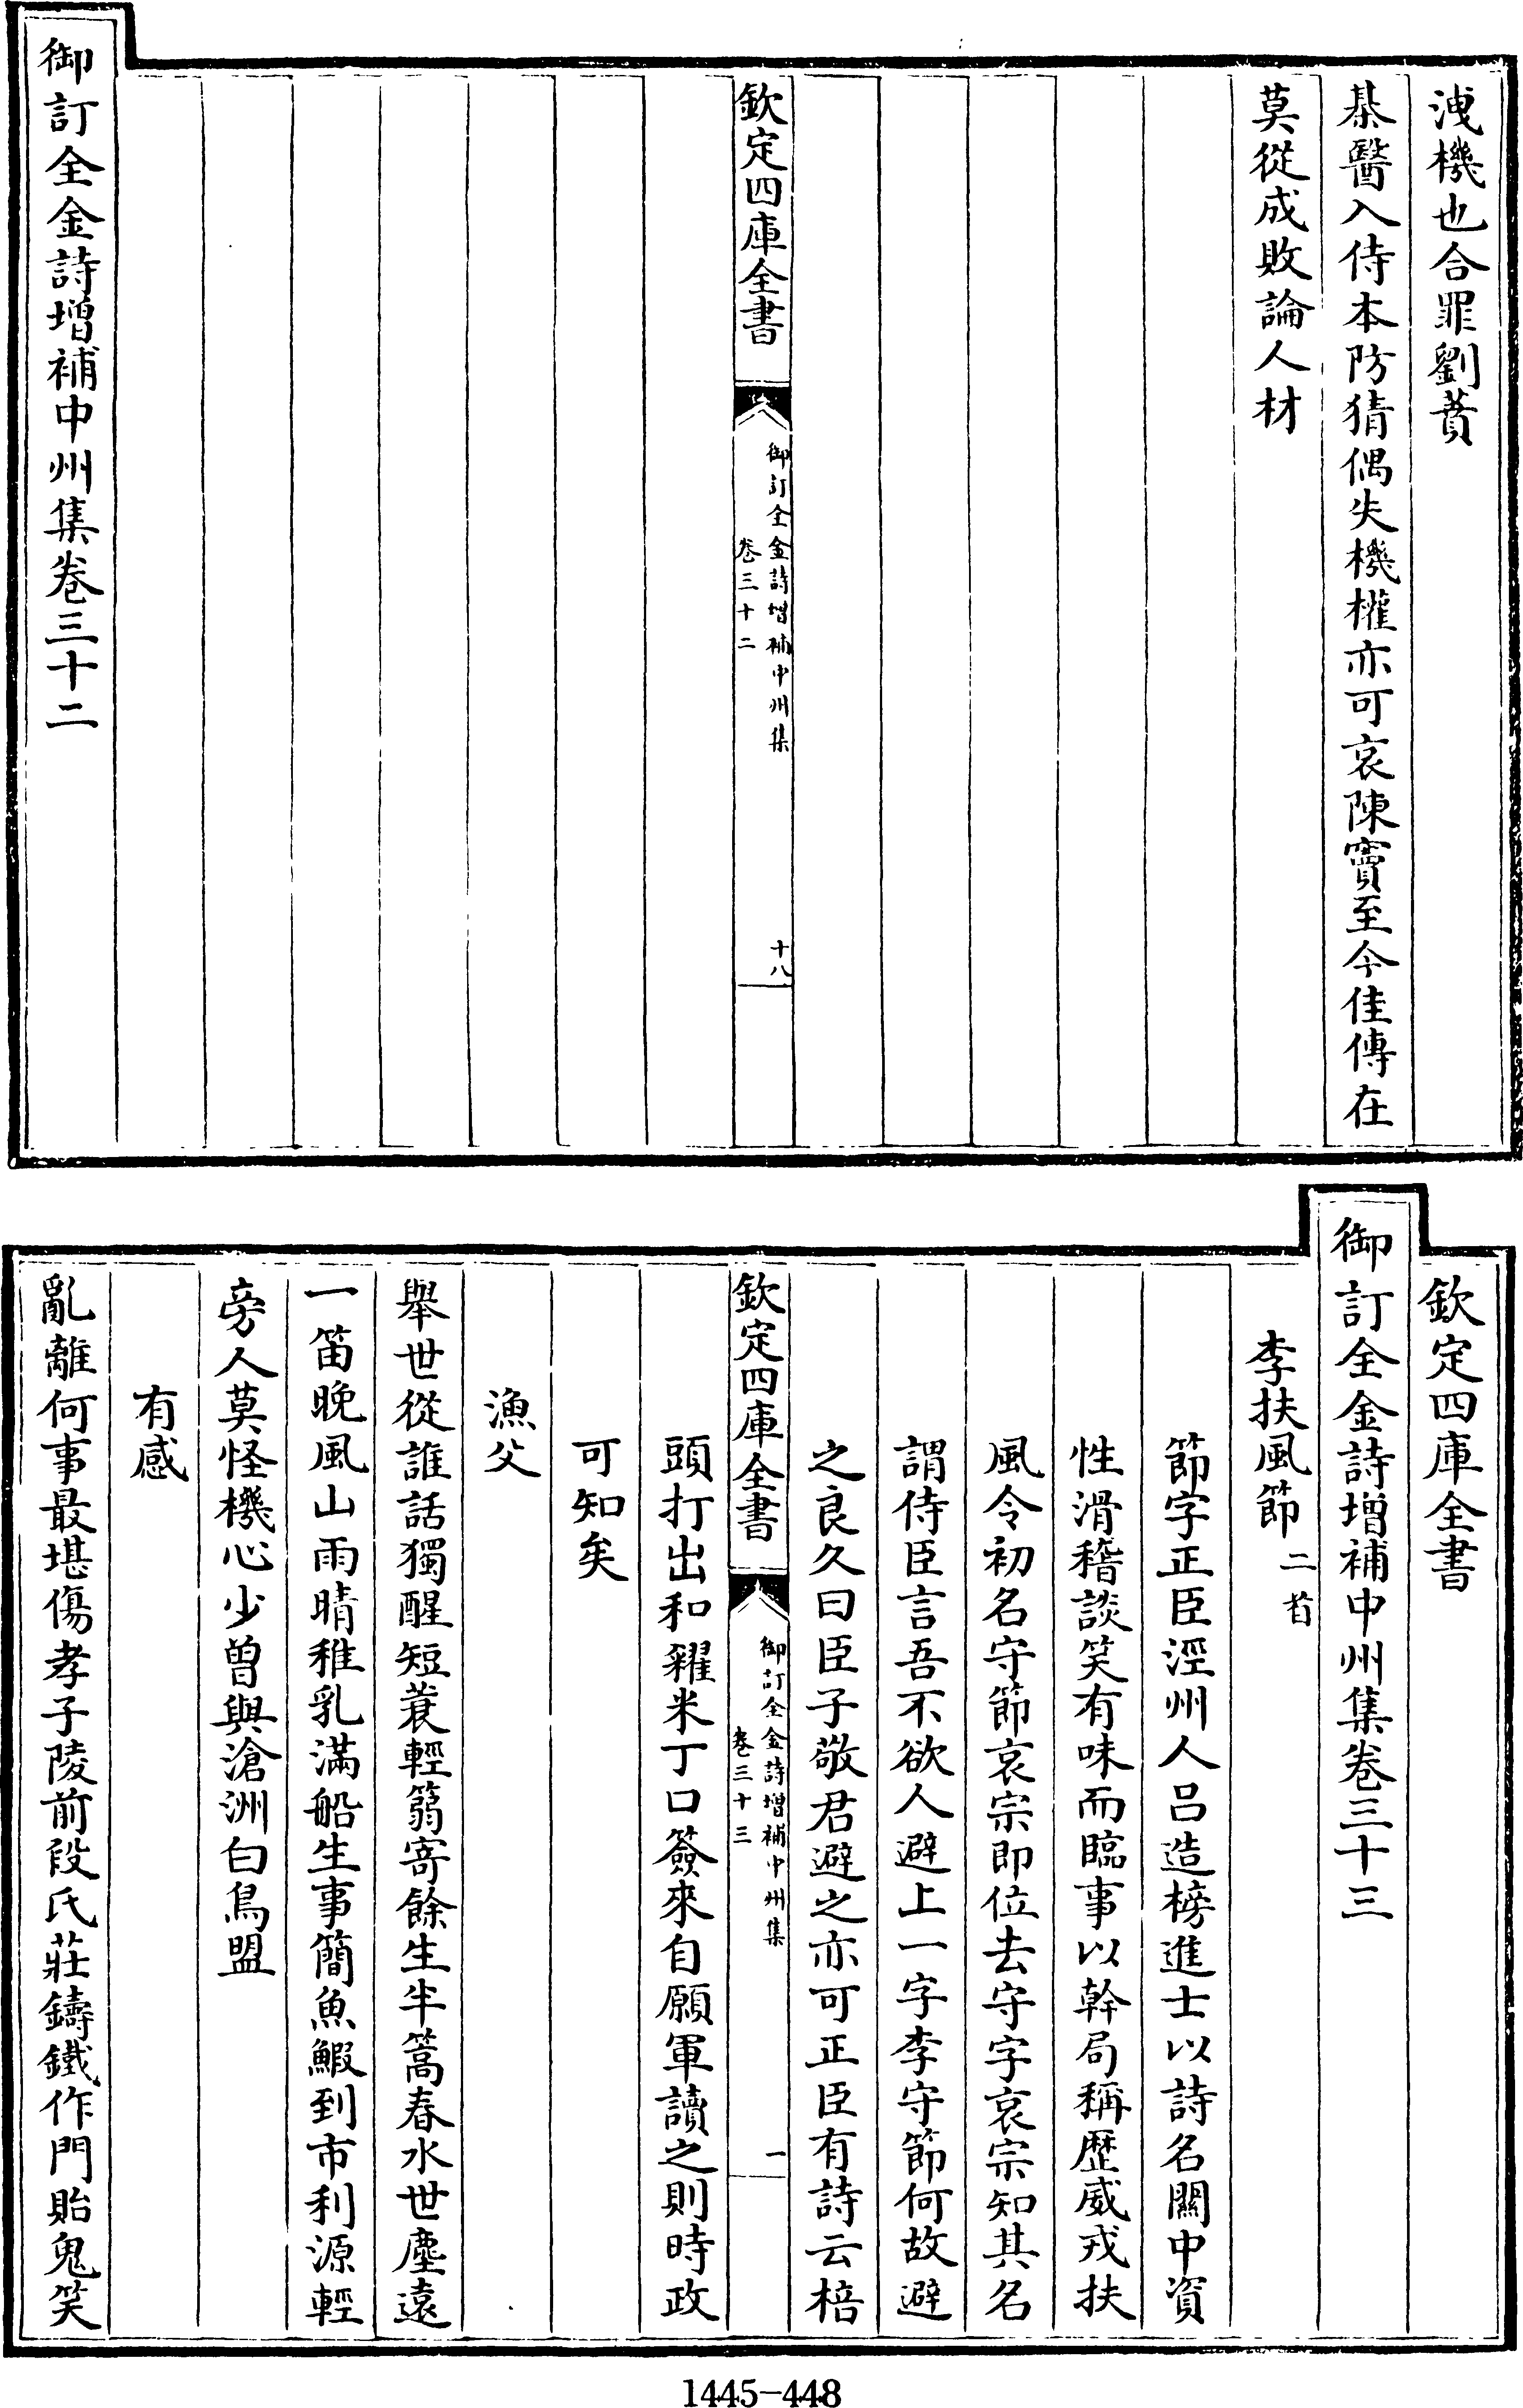 洩機也合罪劉蕡
棊醫入侍本防猜偶失機權亦可哀陳竇至今佳傳在
莫從成敗論人材
欽定四庫全書
御訂全金詩增補中州集
卷三十二
十八
御訂全金詩增補中州集卷三十二
欽定四庫全書
御訂全金詩增補中州集卷三十三
李扶風節二首
節字正臣涇州人吕造榜進士以詩名關中資
性滑稽談笑有味而臨事以幹局稱歷威戎扶
風令初名守節哀宗即位去守字哀宗知其名
謂侍臣言吾不欲人避上一字李守節何故避
之良久曰臣子敬君避之亦可正臣有詩云棓
欽定四庫全書
御訂全金詩增補中州集
卷三十三
一
頭打出和糴米丁口簽來自願軍讀之則時政
可知矣
漁父
舉世從誰話獨醒短蓑輕篛寄餘生半篙春水世塵遠
一笛晚風山雨晴稚乳滿船生事簡魚鰕到市利源輕
旁人莫怪機心少曽與滄洲白鳥盟
有感
亂離何事最堪傷孝子陵前段氏莊鑄鐵作門貽鬼笑
1445-448